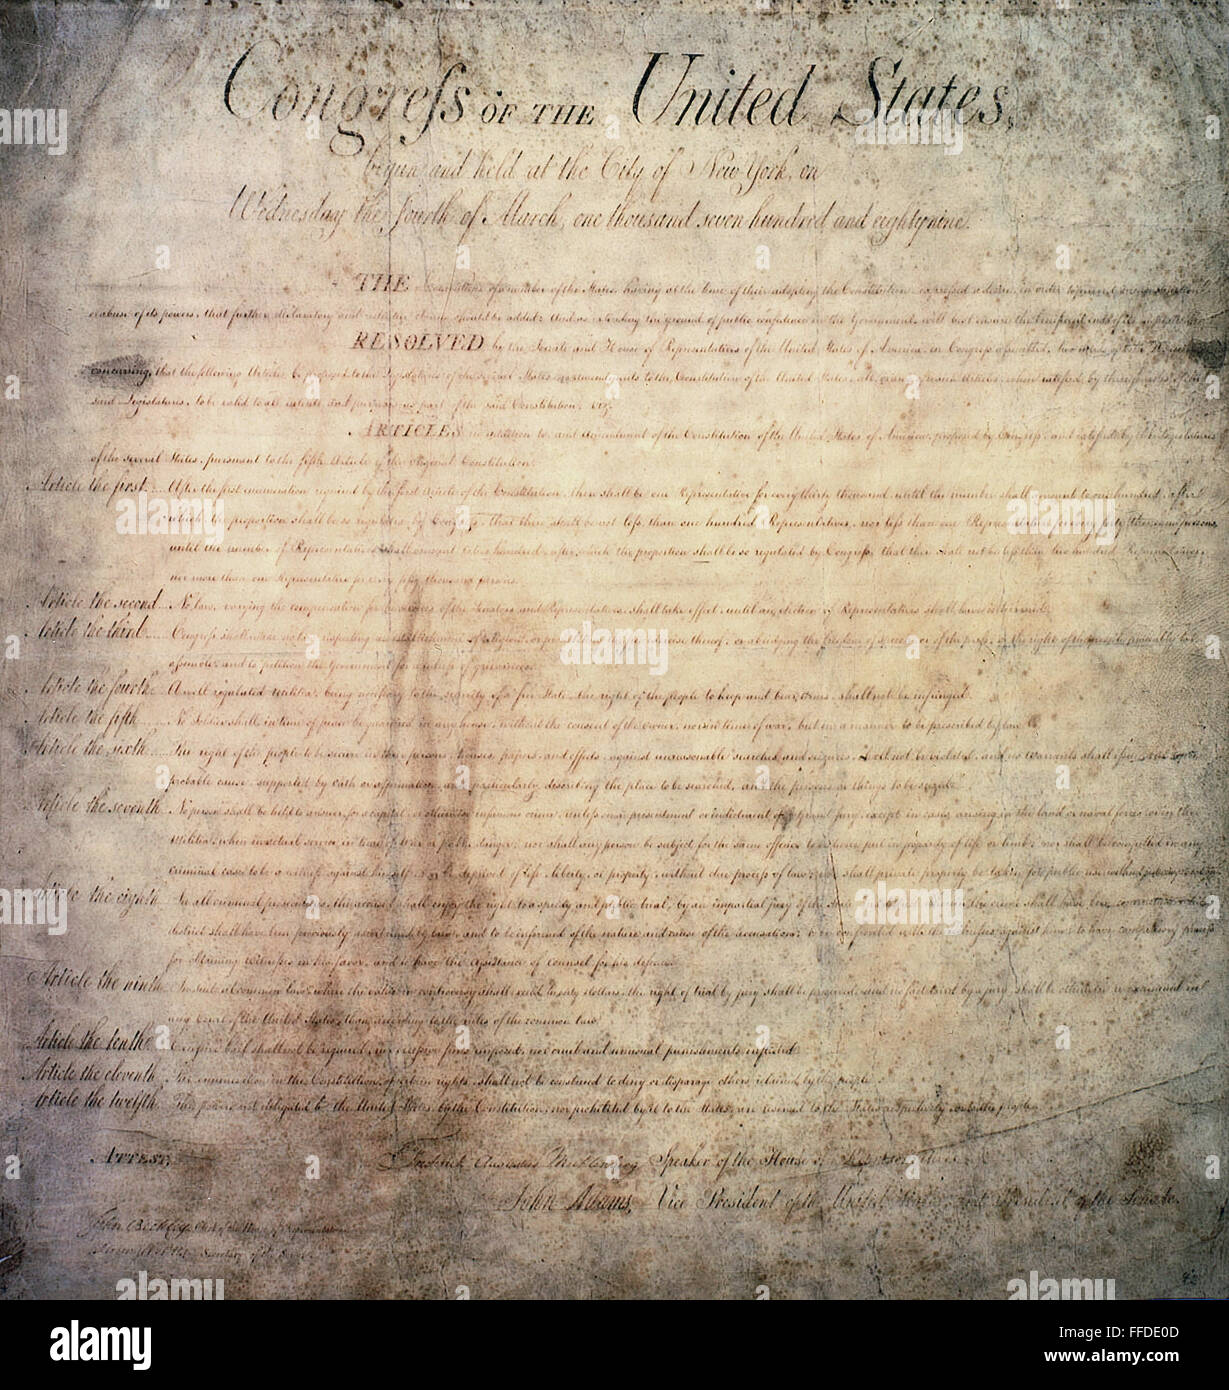 Congress OF THE United States,
begun and held at the City of New York, on
Wednesday the fourth of March, one thousand seven hundred and eighty nine.
THE of the States, having at the time of their adopting the Constitution expressed a desire, in order to prevent
or abuse of its powers, that further declaratory and restrictive clauses should be added: And as extending the ground of public confidence in the Government, will best ensure the beneficent ends of its
RESOLVED by the Senate and House of Representatives of the United States of America in Congress assembled, two thirds of both
concurring, that the following Articles be proposed to the Legislatures of the several States, as amendments to the Constitution of the United States, all, or any of which Articles, when ratified by three fourths of the
said Legislatures, to be valid to all intents and purposes, as part of the said Constitution; viz.
ARTICLES in addition to, and Amendment of the Constitution of the United States of America, proposed by Congress, and ratified by the Legislatures
of the several States, pursuant to the fifth Article of the original Constitution.
Article the first. After the first enumeration required by the first Article of the Constitution, there shall be one Representative for every thirty thousand, until the number shall amount to one hundred, after
which, the proportion shall be so regulated by Congress, that there shall be not less than one hundred Representatives, nor less than one Representative for every forty thousand persons,
until the number of Representatives shall amount to two hundred, after which the proportion shall be so regulated by Congress, that there shall not be less than two hundred Representatives,
nor more than one Representative for every fifty thousand persons.
Article the second. No law, varying the compensation for the services of the Senators and Representatives, shall take effect, until an election of Representatives shall have intervened.
Article the third. Congress shall make no law respecting an establishment of religion, or prohibiting the free exercise thereof; or abridging the freedom of speech, or of the press; or the right of the people peaceably to
assemble, and to petition the Government for a redress of grievances.
Article the fourth. A well regulated militia, being necessary to the security of a free State, the right of the people to keep and bear arms, shall not be infringed.
Article the fifth. No Soldier shall, in time of peace be quartered in any house, without the consent of the owner, nor in time of war, but in a manner to be prescribed by law.
Article the sixth. The right of the people to be secure in their persons, houses, papers, and effects, against unreasonable searches and seizures, shall not be violated, and no warrants shall issue, but upon
probable cause, supported by oath or affirmation, and particularly describing the place to be searched, and the persons or things to be seized.
Article the seventh. No person shall be held to answer for a capital, or otherwise infamous crime, unless on a presentment or indictment of a grand jury, except in cases arising in the land or naval forces, or in the
militia, when in actual service in time of War or public danger; nor shall any person be subject for the same offence to be twice put in jeopardy of life or limb; nor shall be compelled in any
criminal case to be a witness against himself, nor be deprived of life, liberty, or property, without due process of law; nor shall private property be taken for public use without just
Article the eighth. In all criminal prosecutions, the accused shall enjoy the right to a speedy and public trial, by an impartial jury of the State and district wherein the crime shall have been committed, which
district shall have been previously ascertained by law, and to be informed of the nature and cause of the accusation; to be confronted with the witnesses against him; to have compulsory process
for obtaining witnesses in his favor, and to have the assistance of counsel for his defence.
Article the ninth. In suits at common law, where the value in controversy shall exceed twenty dollars, the right of trial by jury shall be preserved, and no fact tried by a jury, shall be otherwise re-examined in
any Court of the United States, than according to the rules of the common law.
Article the tenth. Excessive bail shall not be required, nor excessive fines imposed, nor cruel and unusual punishments inflicted.
Article the eleventh. The enumeration in the Constitution, of certain rights, shall not be construed to deny or disparage others retained by the people.
Article the twelfth. The powers not delegated to the United States by the Constitution, nor prohibited by it to the States, are reserved to the States respectively, or to the people.
ATTEST,
Frederick Augustus Muhlenberg Speaker of the House of Representatives
John Adams, Vice President of the United States, and President of the Senate.
John Beckley, Clerk of the House of Representatives.
Secretary of the Senate.
alamy stock photo
alamy
Image ID: FFDE0D
www.alamy.com